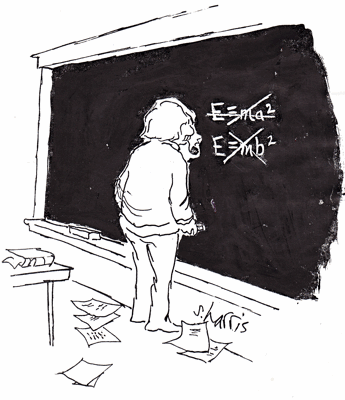 E=ma²
E=mb²
S.harris